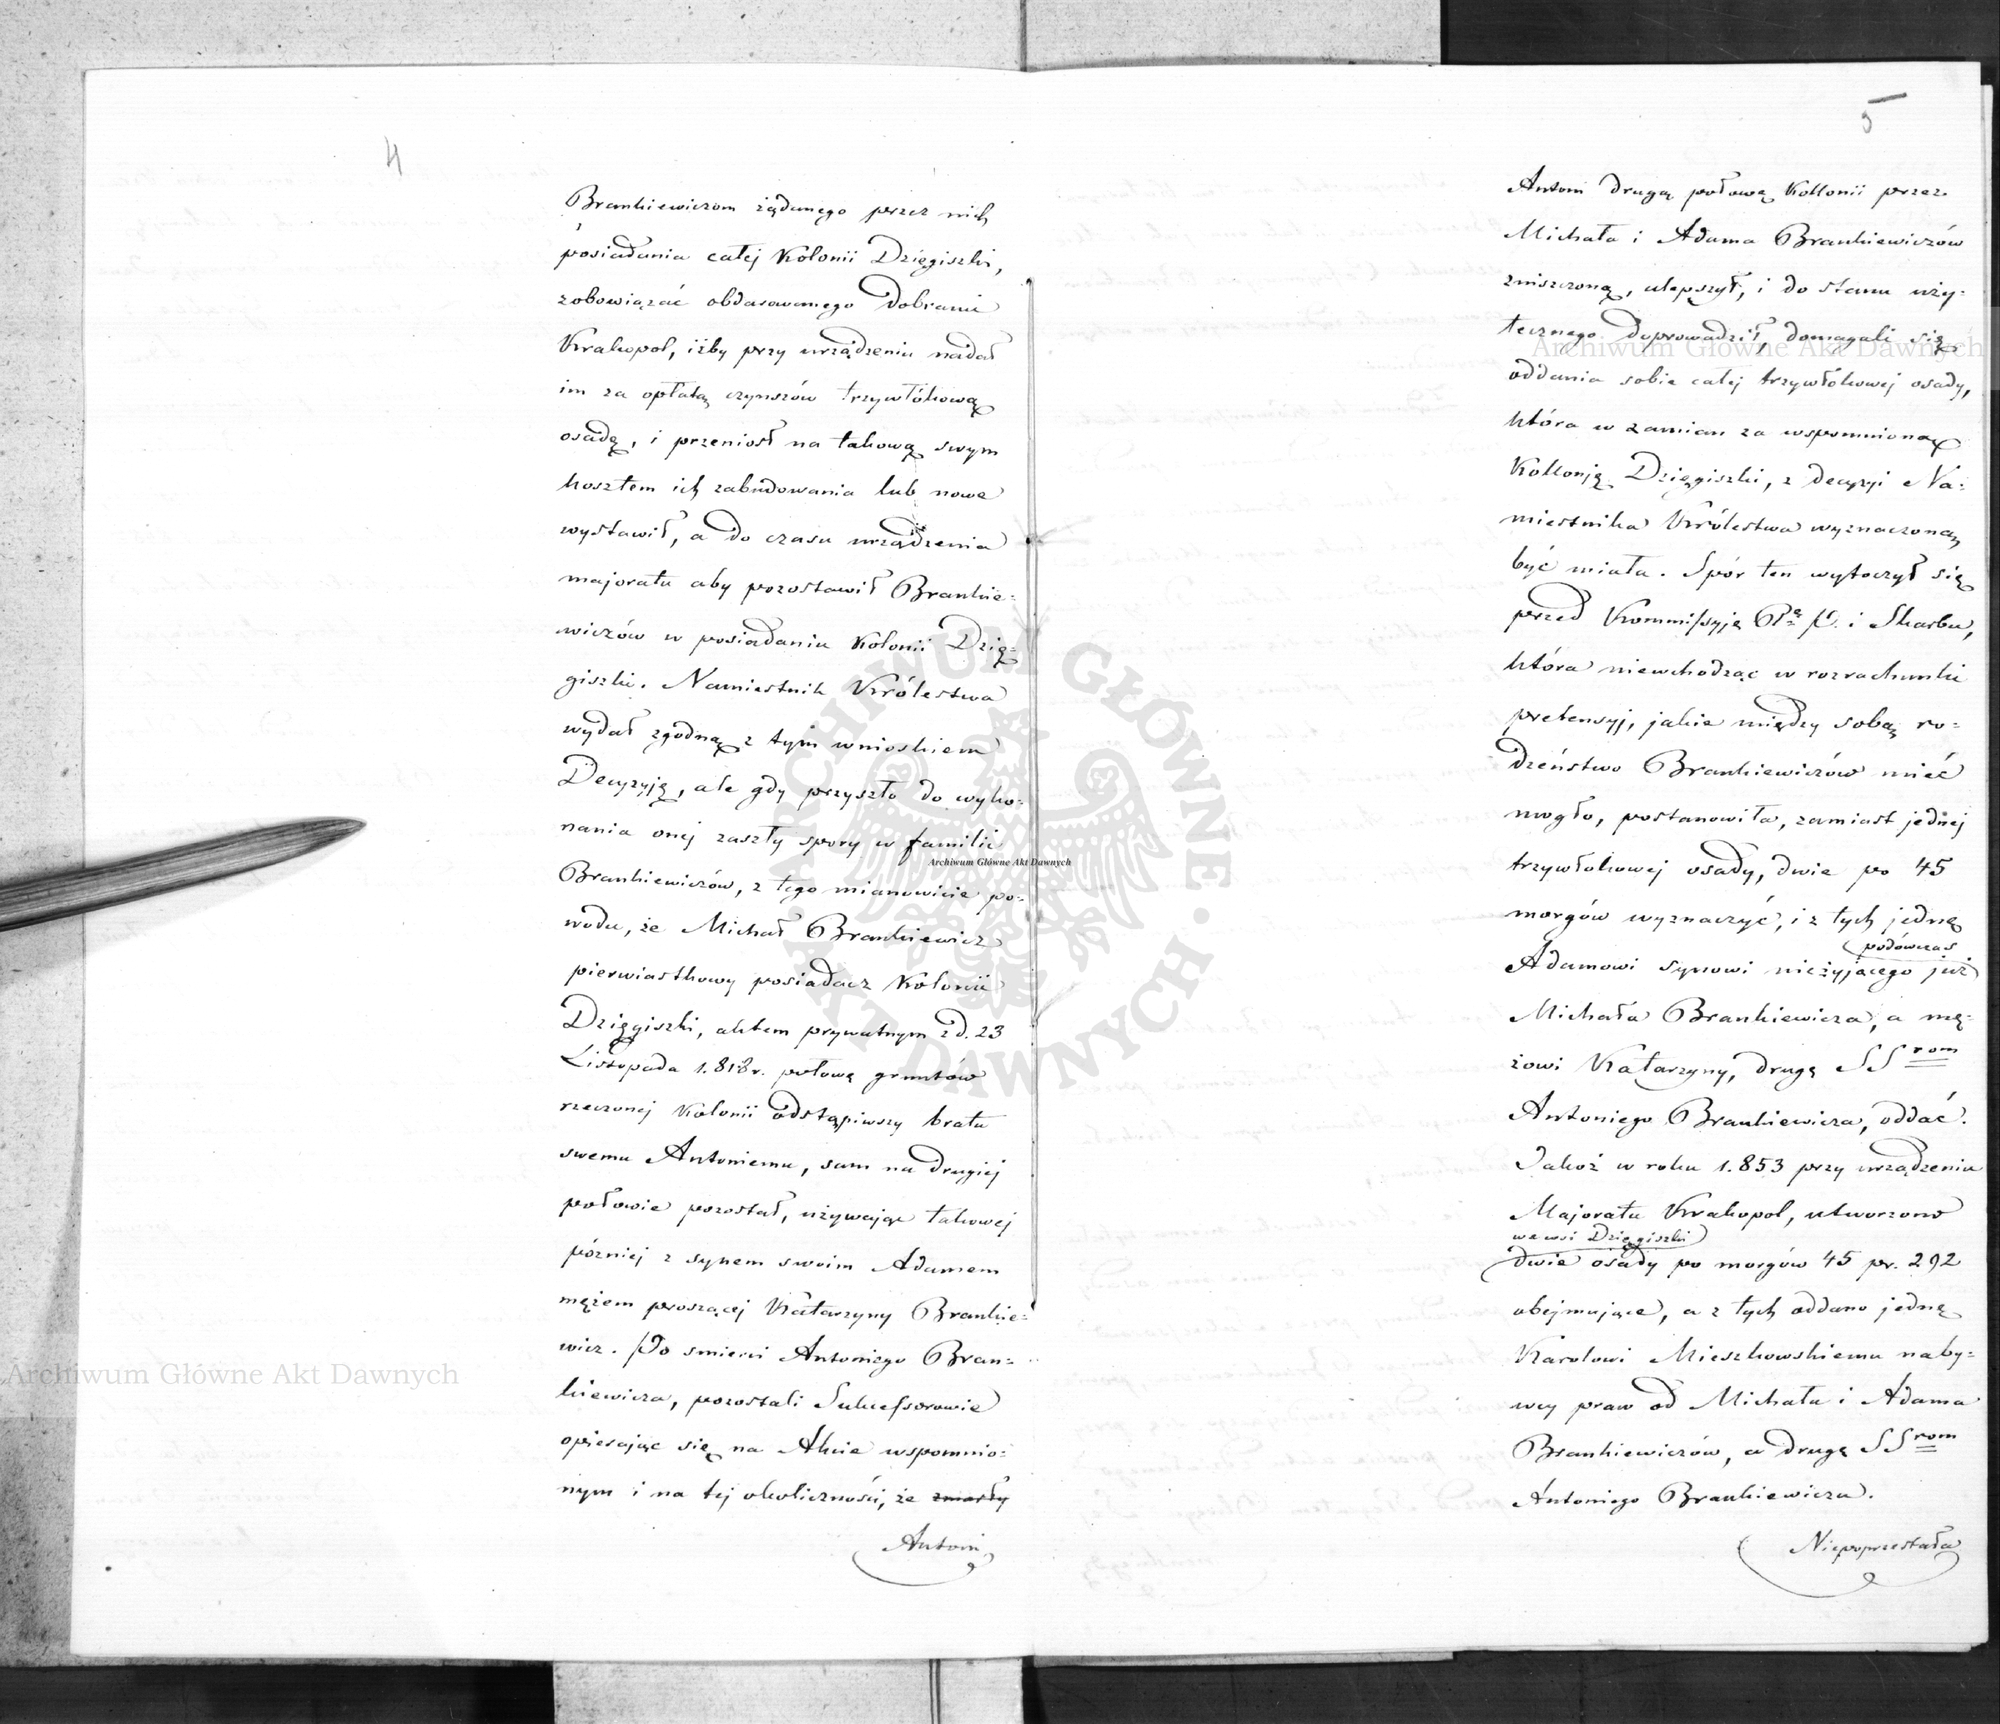 4
Brankiewiczom żądanego przez nich
posiadania całej Kolonii Dzięgiszki,
zobowiązać obdarowanego dobrami
Krakopol, iżby przy urządzeniu nadał
im za opłatą czynszów trzywłókową
osadę, i przeniosł na takową swym
kosztem ich zabudowania lub nowe
wystawił, a do czasu urządzenia
majoratu aby pozostawił Brankie=
wiczów w posiadaniu Kolonii Dzię=
giszki. Namiestnik Królestwa
wydał zgodną z tym wnioskiem
Decyzyję, ale gdy przyszło do wyko=
nania onej zaszły spory w familii
Brankiewiczów, z tego mianowicie po=
wodu, że Michał Brankiewicz
pierwiastkowy posiadacz Kolonii
Dzięgiszki, aktem prywatnym z d. 23
Listopada 1.818 r. połowę gruntów
rzeczonej Kolonii odstąpiwszy bratu
swemu Antoniemu, sam na drugiej
połowie pozostał, używając takowej
później z synem swoim Adamem
mężem proszącej Katarzyny Brankie=
wicz. Po smierci Antoniego Bran=
kiewicza, pozostali Sukcessorowie
opierając się na Akcie wspomnio=
nym i na tej okoliczności, że zmarły
Antoni
5
Antoni drugą połowę Kollonii przez
Michała i Adama Brankiewiczów
zniszczoną, ulepszył, i do stanu uży=
tecznego doprowadził, domagali się
oddania sobie całej trzywłókowej osady,
która w zamian za wspomnioną
Kollonję Dzięgiszki, z decyzji Na=
miestnika Królestwa wyznaczoną
być miała. Spór ten wytoczył się
przed Kommissyję P. i Skarbu,
która niewchodząc w rozrachunki
pretensyj, jakie między sobą ro=
dzeństwo Brankiewiczów mieć
mogło, postanowiła, zamiast jednej
trzywłokowej osady, dwie po 45
morgów wyznaczyć, i z tych jednę
podówczas
Adamowi synowi nieżyjącego już
Michała Brankiewicza, a mę=
żowi Katarzyny, drugę SSrom
Antoniego Brankiewicza, oddać.
Jakoż w roku 1.853 przy urządzeniu
Majoratu Krakopol, utworzono
we wsi Dzięgiszki
dwie osady po morgów 45 pr. 292
obejmujące, a z tych oddano jednę
Karolowi Mieszkowskiemu naby=
wcy praw od Michała i Adama
Brankiewiczów, a drugę SSrom
Antoniego Brankiewicza.
Niepoprzestała
Archiwum Główne Akt Dawnych
Archiwum Główne Akt Dawnych
Archiwum Główne Akt Dawnych
ARCHIWUM GŁÓWNE
AKT DAWNYCH